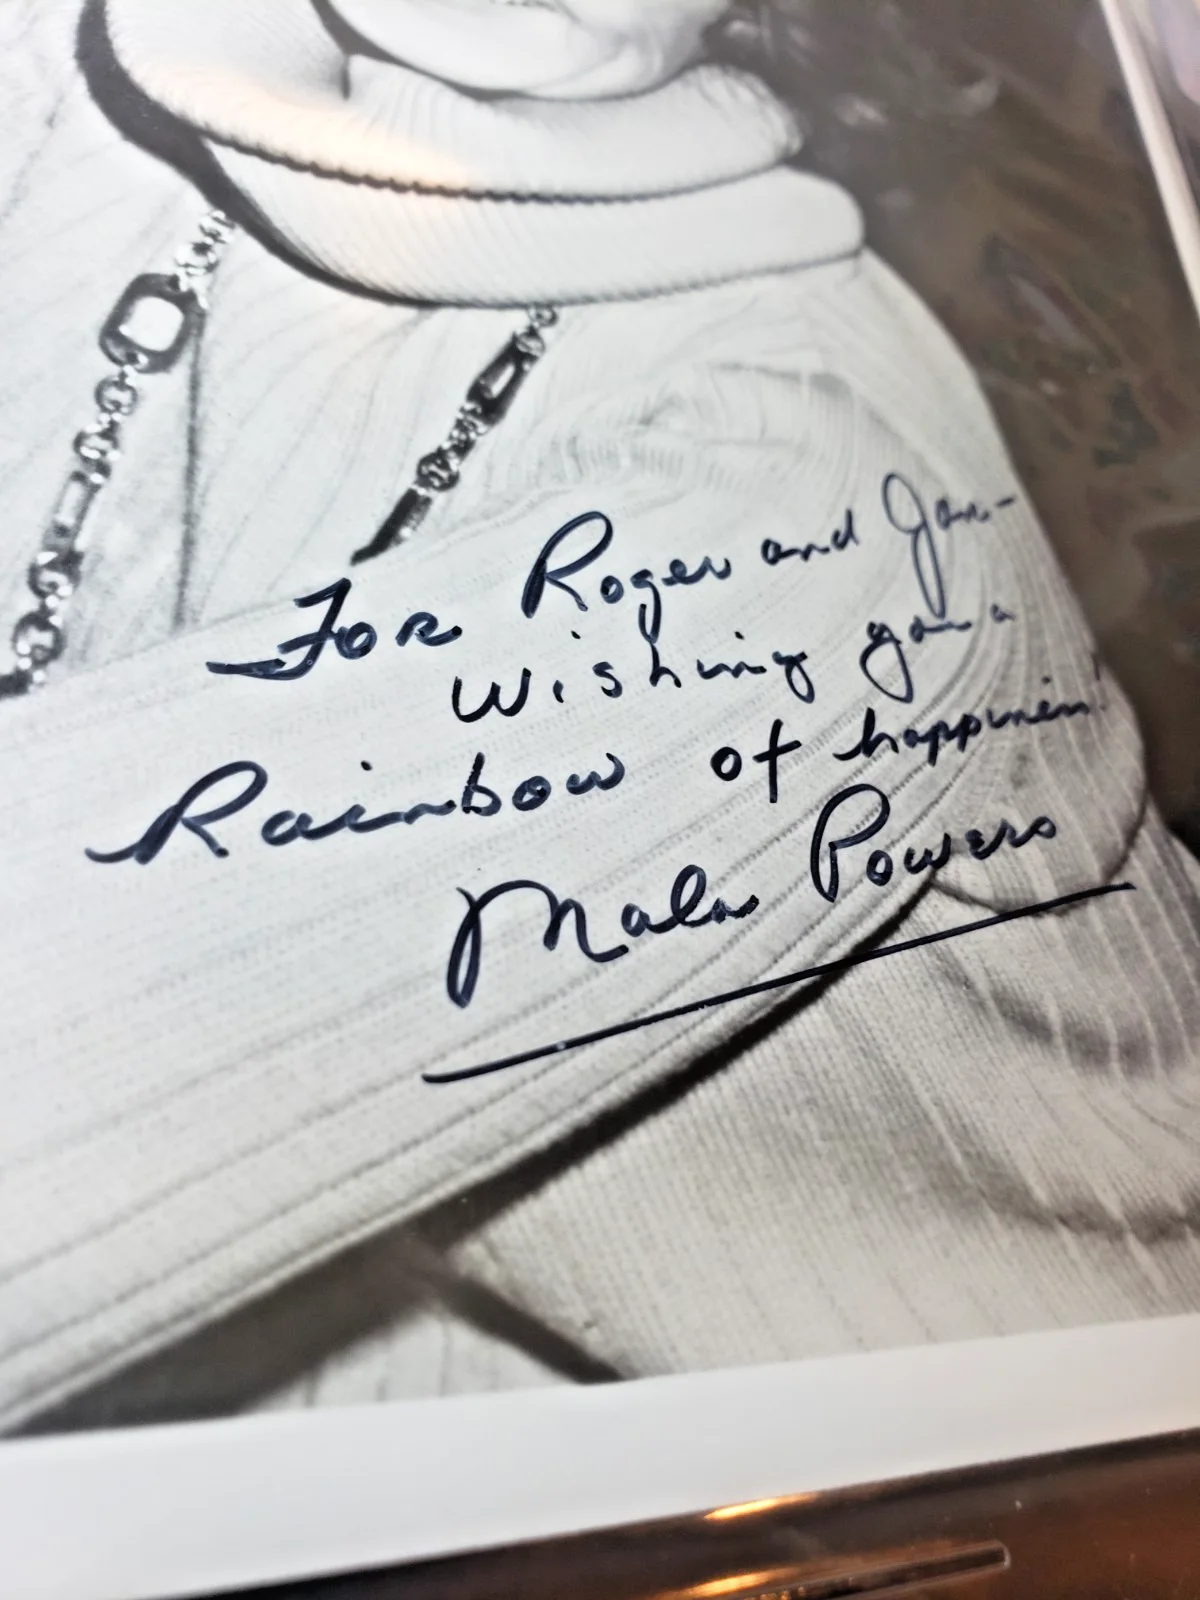 For Roger and Jan-
Wishing you a
Rainbow of happiness!
Mala Powers